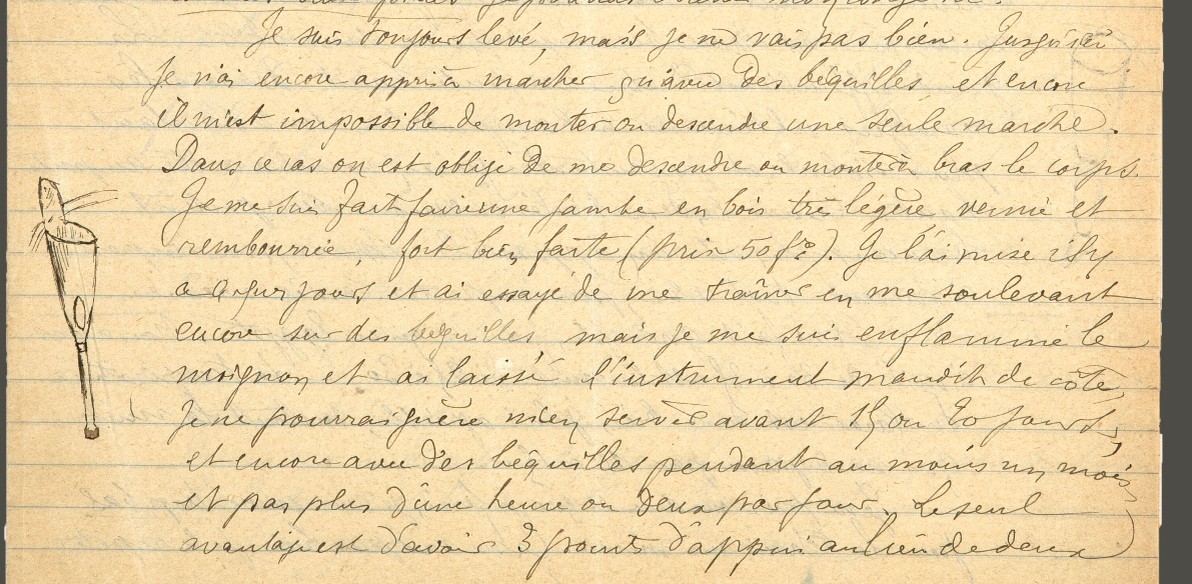 Je suis toujours levé, mais je ne vais pas bien. Jusqu'ici
je n'ai encore appris à marcher qu'avec des béquilles, et encore
il m'est impossible de monter ou descendre une seule marche.
Dans ce cas on est obligé de me descendre ou monter à bras le corps.
Je me suis fait faire une jambe en bois très légère vernie et
rembourrée, fort bien faite (prix 50 f). Je l'ai mise il y
a quelques jours et ai essayé de me traîner en me soulevant
encore sur des béquilles mais je me suis enflammé le
moignon et ai laissé l'instrument maudit de côté,
je ne pourrai guère m'en servir avant 15 ou 20 jours,
et encore avec des béquilles pendant au moins un mois,
et pas plus d'une heure ou deux par jour. Le seul
avantage est d'avoir 3 points d'appui au lieu de deux